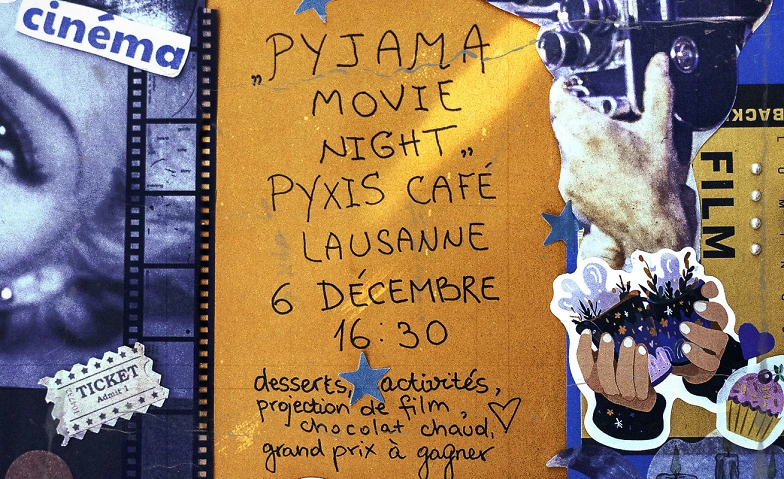 cinéma
„PYJAMA
MOVIE
NIGHT„
PYXIS CAFÉ
LAUSANNE
6 DÉCEMBRE
16:30
desserts, activités,
projection de film,
chocolat chaud,
grand prix à gagner
TICKET
Admit 1
BACK
FILM